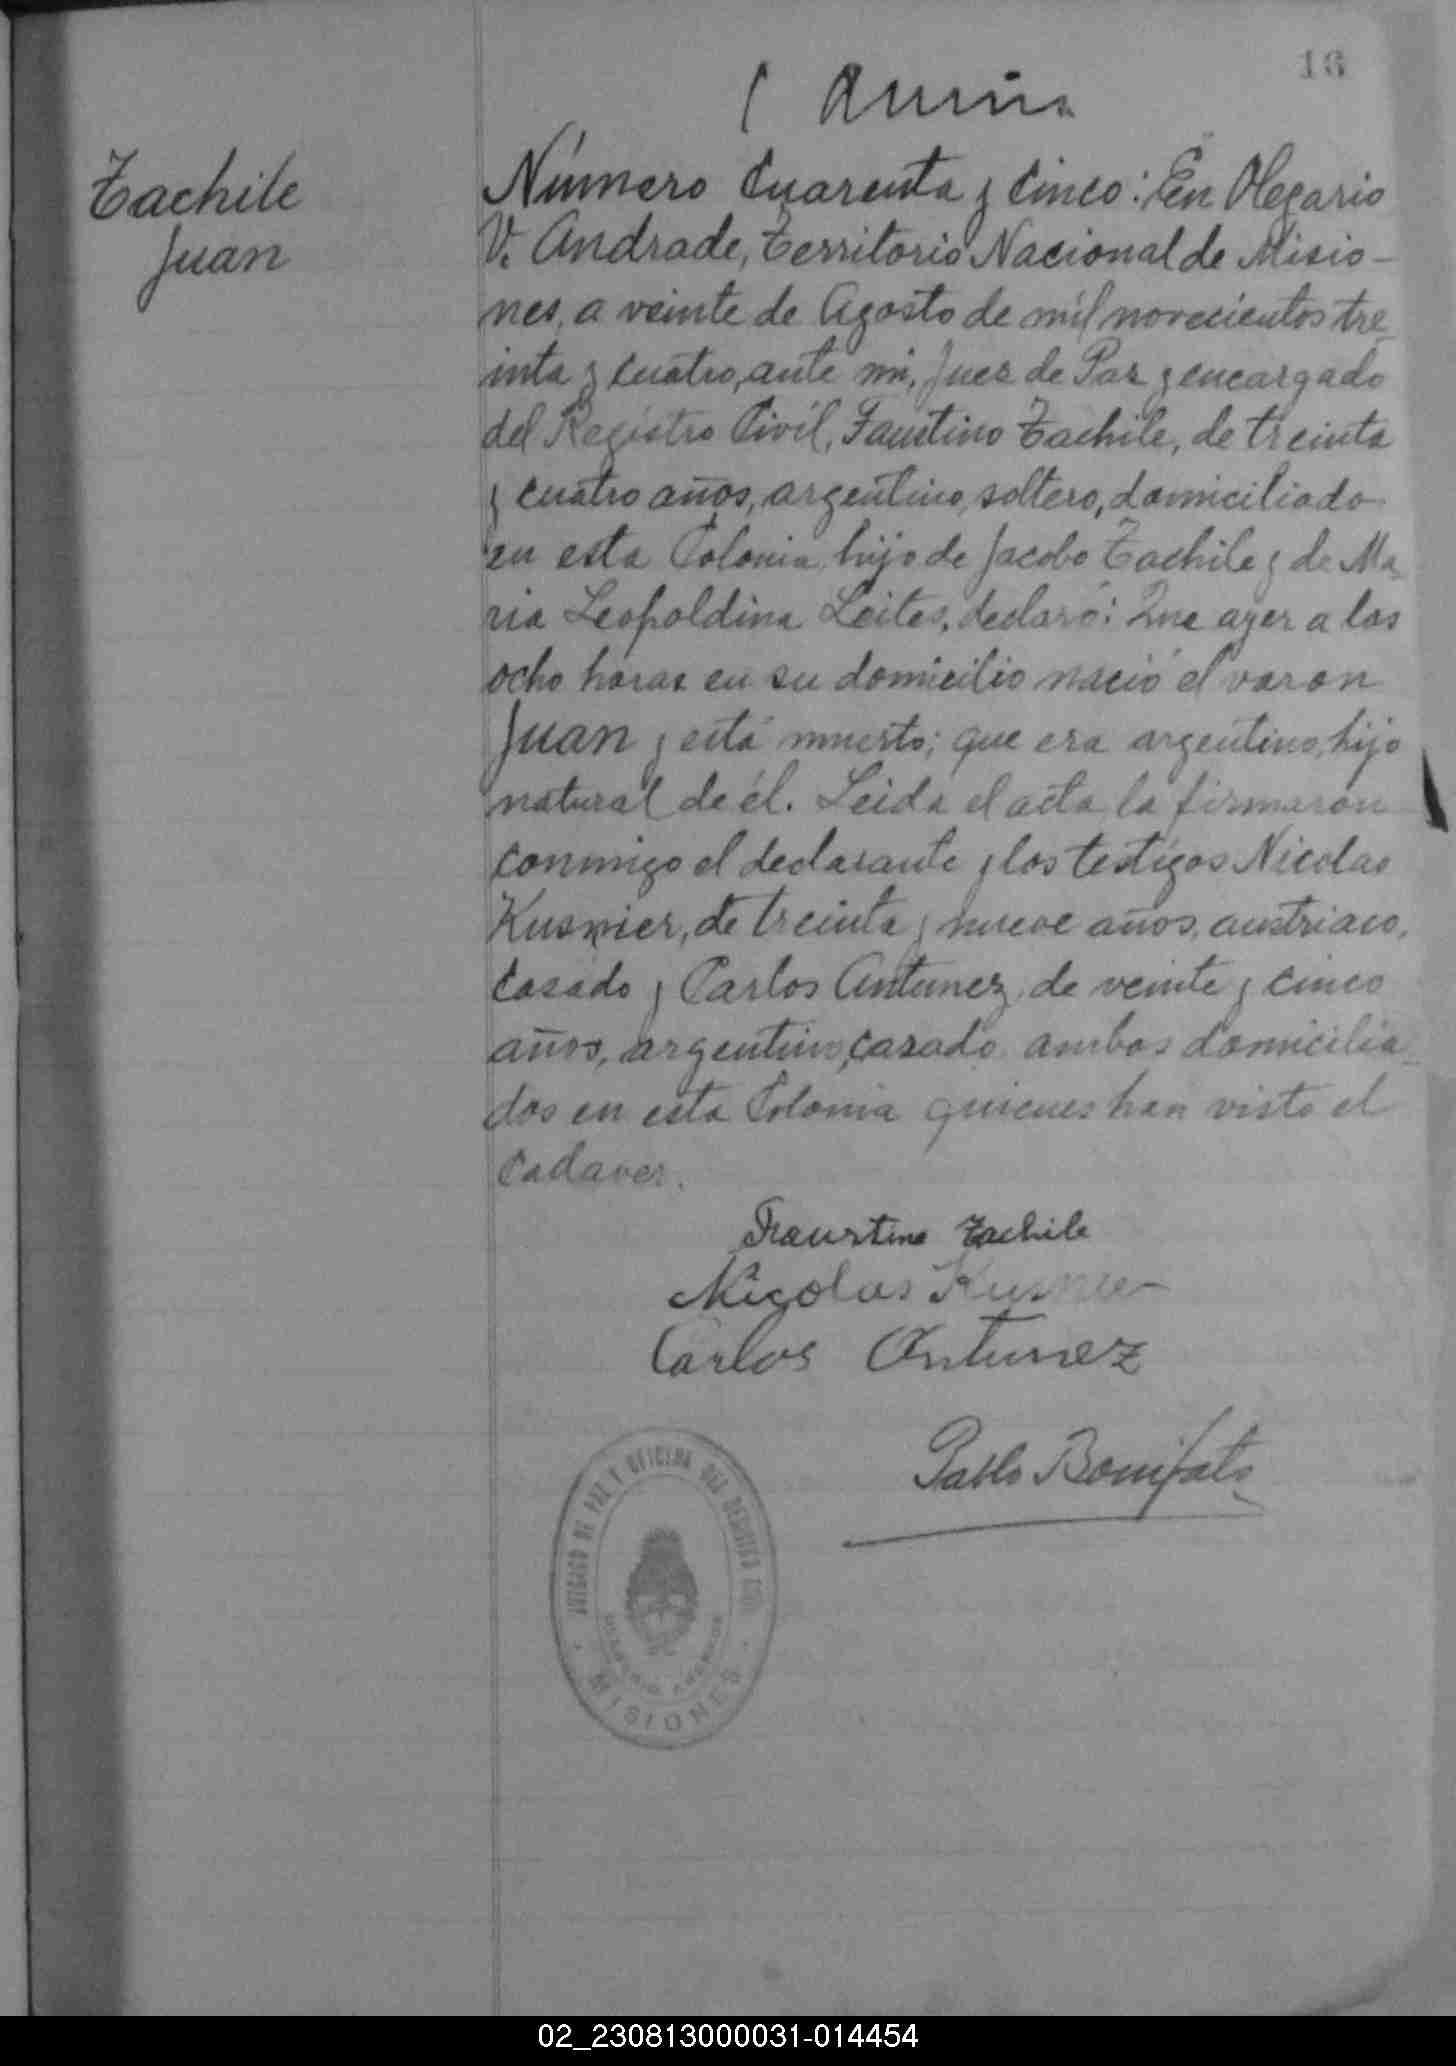 16
Tachile
Juan
Número Cuarenta y Cinco: En Olegario
V. Andrade, Territorio Nacional de Misio-
nes, a veinte de Agosto de mil novecientos tre
inta y cuatro, ante mi, Juez de Paz y encargado
del Registro Civil, Faustino Tachile, de treinta
y cuatro años, argentino, soltero, domiciliado
en esta Colonia, hijo de Jacobo Tachile y de Ma
ria Leopoldina Leites, declaró: Que ayer a las
ocho horas en su domicilio nació el varon
Juan y está muerto; que era argentino, hijo
natural de él. Leida el acta, la firmaron
conmigo el declarante y los testigos Nicolas
Kusnier, de treinta y nueve años, austriaco,
casado y Carlos Antunez, de veinte y cinco
años, argentino, casado, ambos domicilia
dos en esta Colonia quienes han visto el
Cadaver.
Faustino Tachile
Nicolas Kusnier
Carlos Antunez
Pablo Bonifato
JUZGADO DE PAZ Y OFICINA DEL REGISTRO CIVIL
MISIONES
02_230813000031-014454